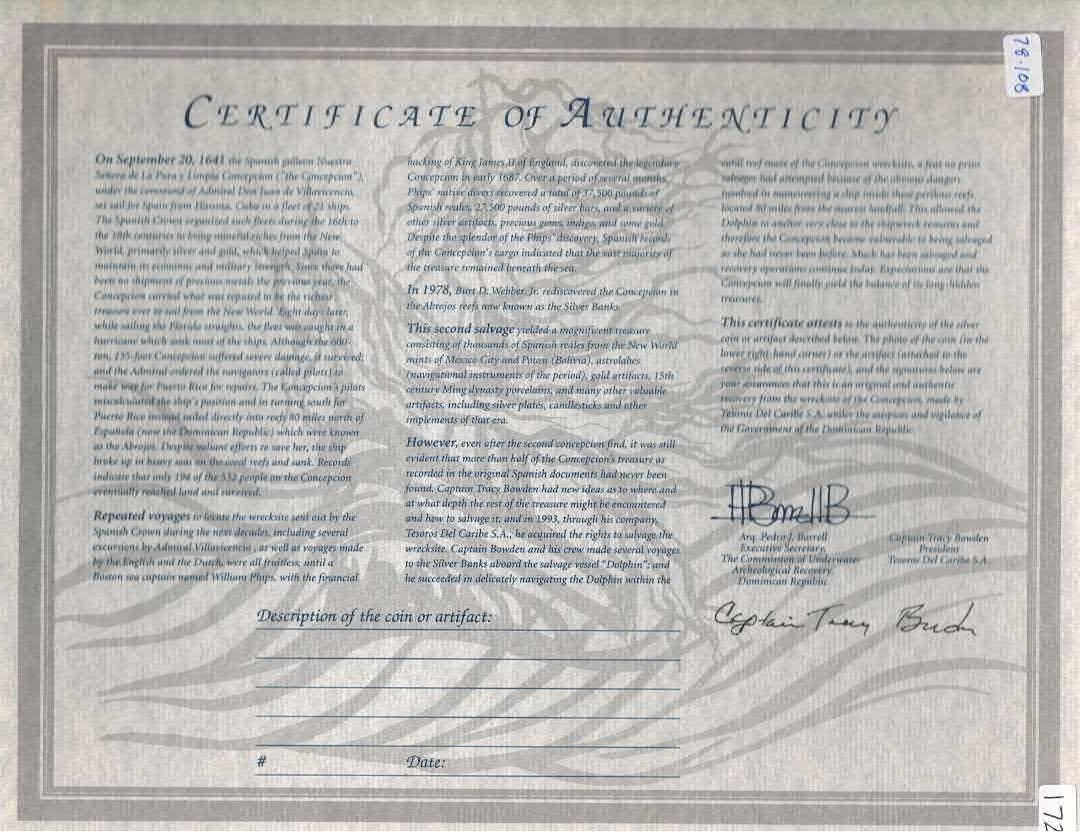 78.108
CERTIFICATE OF AUTHENTICITY
On September 20, 1641 the Spanish galleon Nuestra
Señora de La Pura y Limpia Concepcion ("the Concepcion"),
under the command of Admiral Don Juan de Villavicencio,
set sail for Spain from Havana, Cuba in a fleet of 21 ships.
The Spanish Crown organized such fleets during the 16th to
the 18th centuries to bring mineral riches from the New
World, primarily silver and gold, which helped Spain to
maintain its economic and military strength. Since there had
been no shipment of precious metals the previous year, the
Concepcion carried what was reputed to be the richest
treasure ever to sail from the New World. Eight days later,
while sailing the Florida straights, the fleet was caught in a
hurricane which sank most of the ships. Although the 600-
ton, 135-foot Concepcion suffered severe damage, it survived;
and the Admiral ordered the navigators (called pilots) to
make way for Puerto Rico for repairs. The Concepcion's pilots
miscalculated the ship's position and in turning south for
Puerto Rico instead sailed directly into reefs 80 miles north of
Española (now the Dominican Republic) which were known
as the Abrojos. Despite valiant efforts to save her, the ship
broke up in heavy seas on the coral reefs and sank. Records
indicate that only 194 of the 532 people on the Concepcion
eventually reached land and survived.
Repeated voyages to locate the wrecksite sent out by the
Spanish Crown during the next decades, including several
excursions by Admiral Villavicencio, as well as voyages made
by the English and the Dutch, were all fruitless, until a
Boston sea captain named William Phips, with the financial
backing of King James II of England, discovered the legendary
Concepcion in early 1687. Over a period of several months,
Phips' native divers recovered a total of 37,500 pounds of
Spanish reales, 27,500 pounds of silver bars, and a variety of
other silver artifacts, precious gems, indigo, and some gold.
Despite the splendor of the Phips' discovery, Spanish records
of the Concepcion's cargo indicated that the vast majority of
the treasure remained beneath the sea.
In 1978, Burt D. Webber, Jr. rediscovered the Concepcion in
the Abrojos reefs now known as the Silver Banks.
This second salvage yielded a magnificent treasure
consisting of thousands of Spanish reales from the New World
mints of Mexico City and Potosi (Bolivia), astrolabes
(navigational instruments of the period), gold artifacts, 15th
century Ming dynasty porcelains, and many other valuable
artifacts, including silver plates, candlesticks and other
implements of that era.
However, even after the second concepcion find, it was still
evident that more than half of the Concepcion's treasure as
recorded in the original Spanish documents had never been
found. Captain Tracy Bowden had new ideas as to where and
at what depth the rest of the treasure might be encountered
and how to salvage it; and in 1993, through his company,
Tesoros Del Caribe S.A., he acquired the rights to salvage the
wrecksite. Captain Bowden and his crew made several voyages
to the Silver Banks aboard the salvage vessel "Dolphin"; and
he succeeded in delicately navigating the Dolphin within the
coral reef maze of the Concepcion wrecksite, a feat no prior
salvager had attempted because of the obvious danger
involved in maneuvering a ship inside those perilous reefs,
located 80 miles from the nearest landfall. This allowed the
Dolphin to anchor very close to the shipwreck remains and
therefore the Concepcion became vulnerable to being salvaged
as she had never been before. Much has been salvaged and
recovery operations continue today. Expectations are that the
Concepcion will finally yield the balance of its long-hidden
treasures.
This certificate attests to the authenticity of the silver
coin or artifact described below. The photo of the coin (in the
lower right-hand corner) or the artifact (attached to the
reverse side of this certificate), and the signatures below are
your assurances that this is an original and authentic
recovery from the wrecksite of the Concepcion, made by
Tesoros Del Caribe S.A. under the auspices and vigilance of
the Government of the Dominican Republic.
Arq. Pedro J. Borrell
Executive Secretary,
The Commission of Underwater
Archeological Recovery,
Dominican Republic
Captain Tracy Bowden
President
Tesoros Del Caribe S.A.
Captain Tracy Bowden
Description of the coin or artifact:
# Date:
172